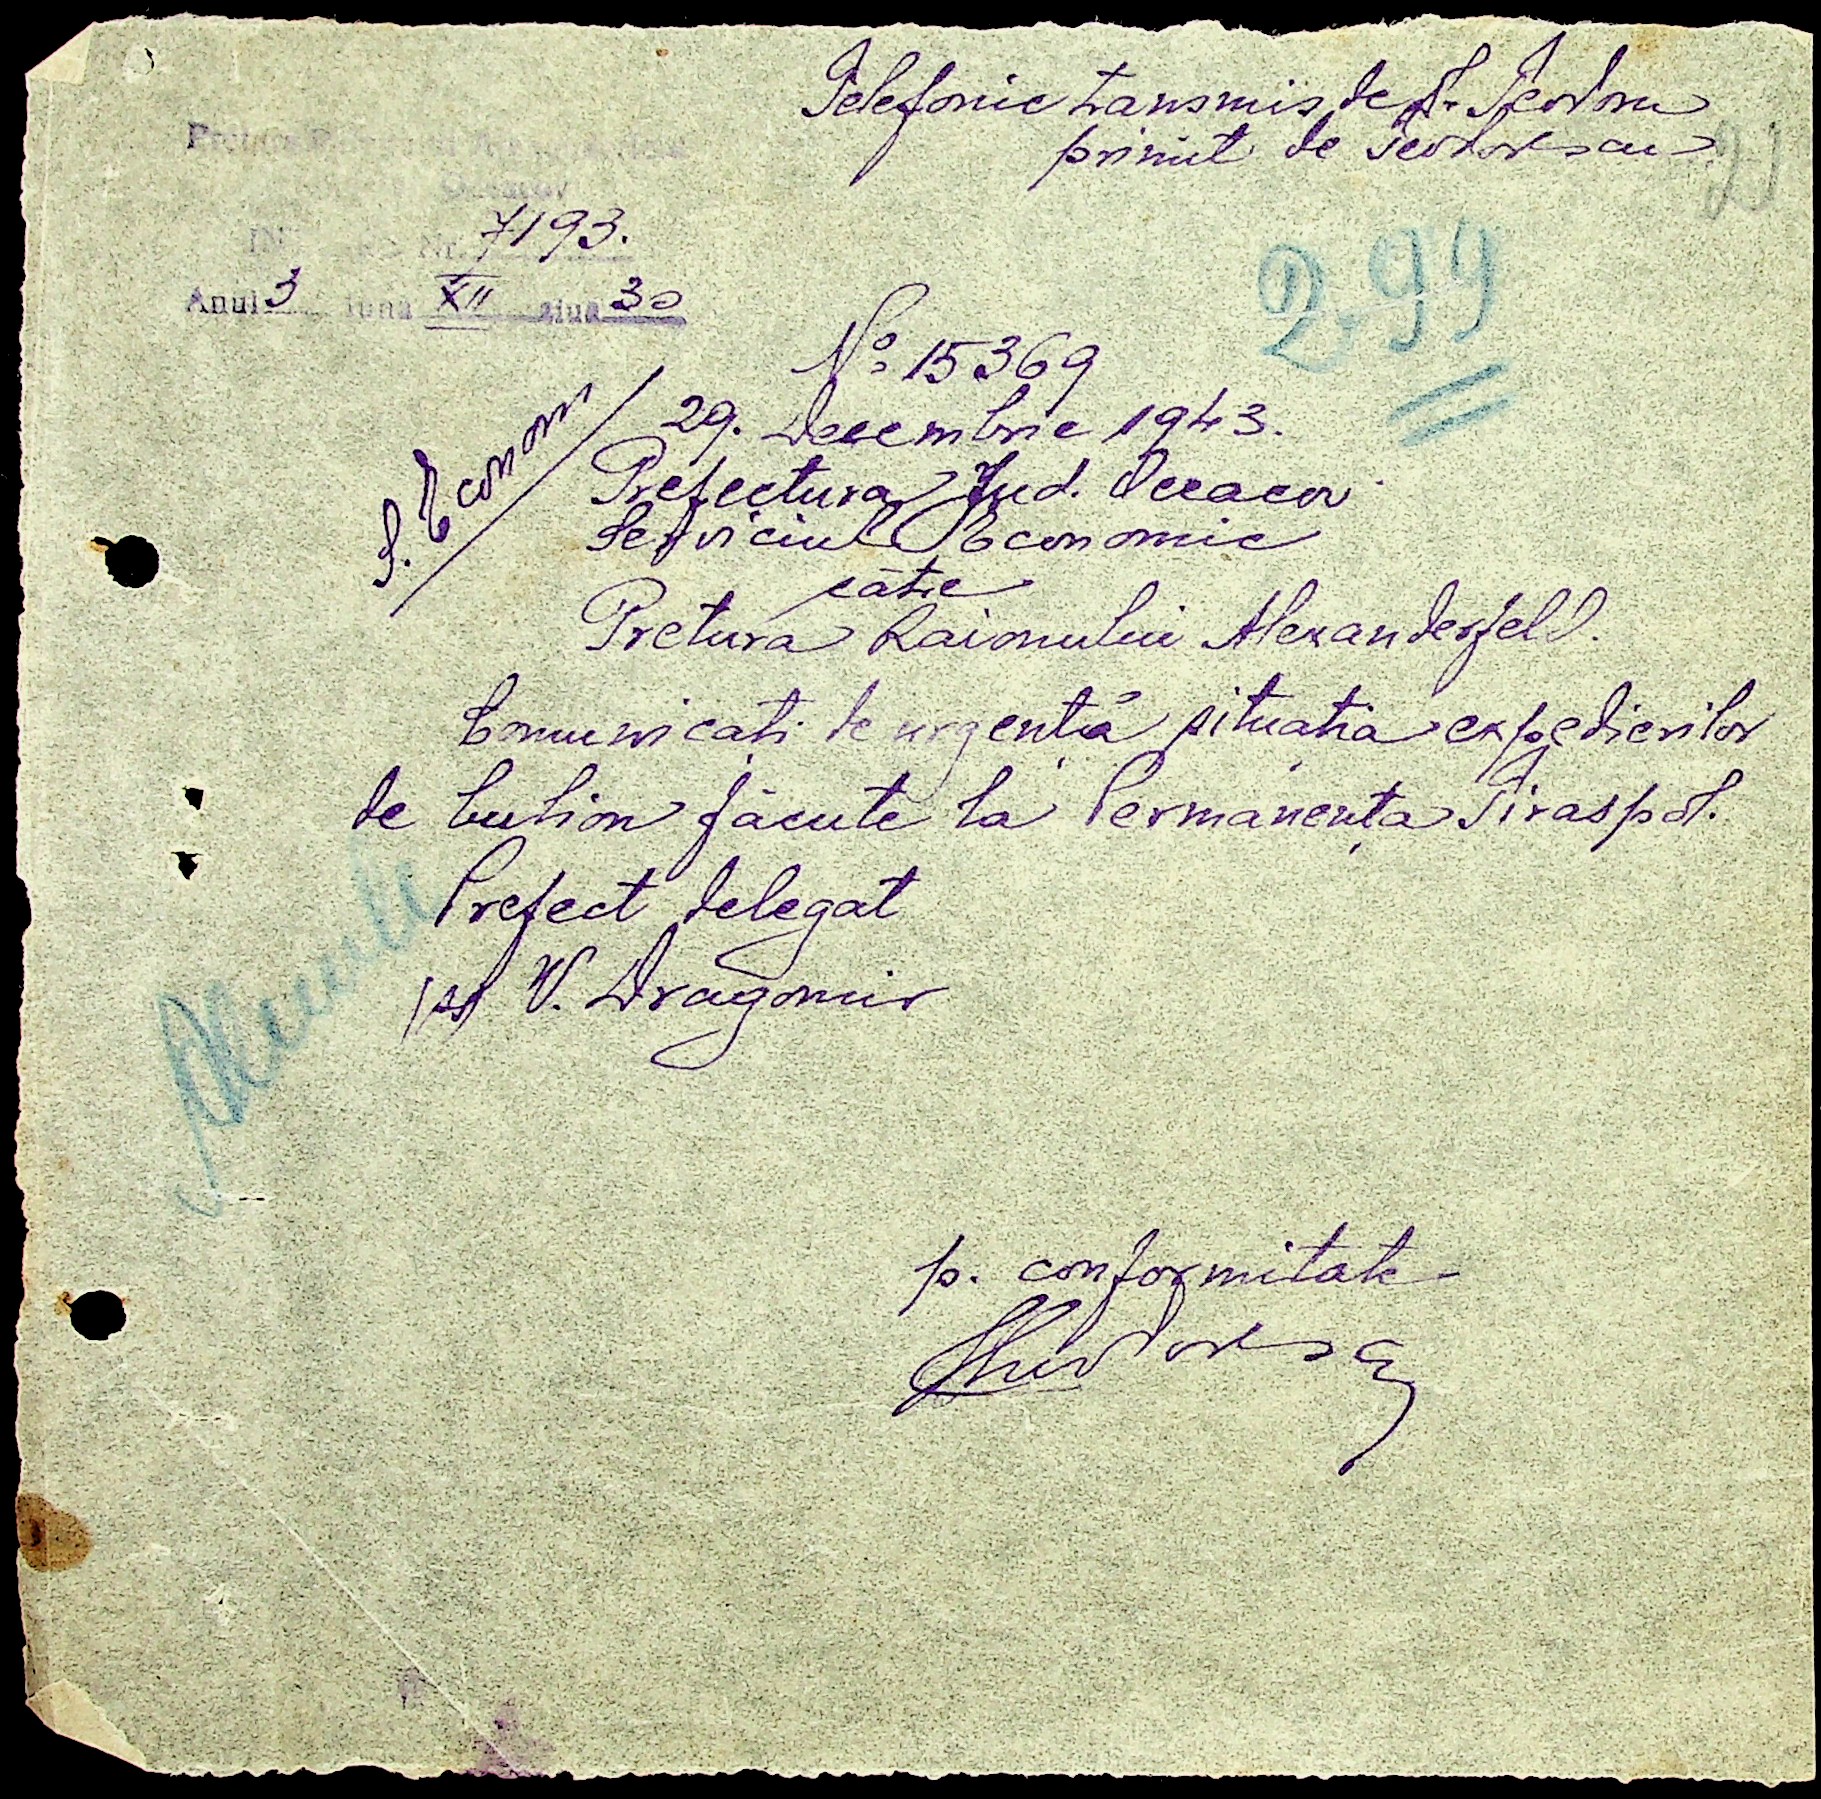 Telefonic transmis de D. Teodoru
primit de Teodorescu
21
Nr. 7193.
Anul 3 luna XII ziua 30
2,99
No 15369
29. Decembrie 1943.
S. Econom
Prefectura Jud. Oceacov
Serviciul Economic
către
Pretura Raionului Alexanderfeld.
Comunicați de urgență situația expedierilor
de bulion făcute la Permanența Tiraspol.
Prefect delegat
(ss) V. Dragomir
p. conformitate